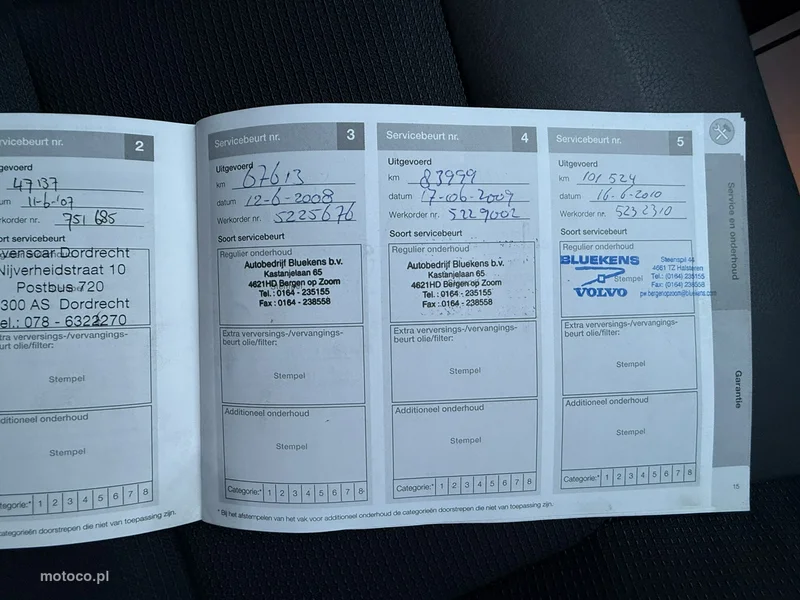 Servicebeurt nr.
2
47137
11-6-'07
751 685
Dordrecht
Nijverheidstraat 10
Postbus 720
300 AS Dordrecht
el.: 078 - 6322270
Stempel
Additioneel onderhoud
Stempel
1 2 3 4 5 6 7 8
categorieën doorstrepen die niet van toepassing zijn.
Servicebeurt nr.
3
Uitgevoerd
km 67613
datum 12-6-2008
Werkorder nr. 5225676
Soort servicebeurt
Regulier onderhoud
Autobedrijf Bluekens b.v.
Kastanjelaan 65
4621HD Bergen op Zoom
Tel.: 0164 - 235155
Fax.: 0164 - 238558
Extra verversings-/vervangings-
beurt olie/filter:
Stempel
Additioneel onderhoud
Stempel
Categorie:* 1 2 3 4 5 6 7 8
Servicebeurt nr.
4
Uitgevoerd
km 83999
datum 17-06-2009
Werkorder nr. 5229002
Soort servicebeurt
Regulier onderhoud
Autobedrijf Bluekens b.v.
Kastanjelaan 65
4621HD Bergen op Zoom
Tel.: 0164 - 235155
Fax.: 0164 - 238558
Extra verversings-/vervangings-
beurt olie/filter:
Stempel
Additioneel onderhoud
Stempel
Categorie:* 1 2 3 4 5 6 7 8
Servicebeurt nr.
5
Uitgevoerd
km 101 524
datum 16-6-2010
Werkorder nr. 5232310
Soort servicebeurt
Regulier onderhoud
BLUEKENS
Stempel
VOLVO
4661 TZ Halsteren
Tel.: (0164) 235155
Fax: (0164) 238558
Extra verversings-/vervangings-
beurt olie/filter:
Stempel
Additioneel onderhoud
Stempel
Categorie:* 1 2 3 4 5 6 7 8
* Bij het afstempelen van het vak voor additioneel onderhoud de categorieën doorstrepen die niet van toepassing zijn.
Service en onderhoud
Garantie
15
motoco.pl